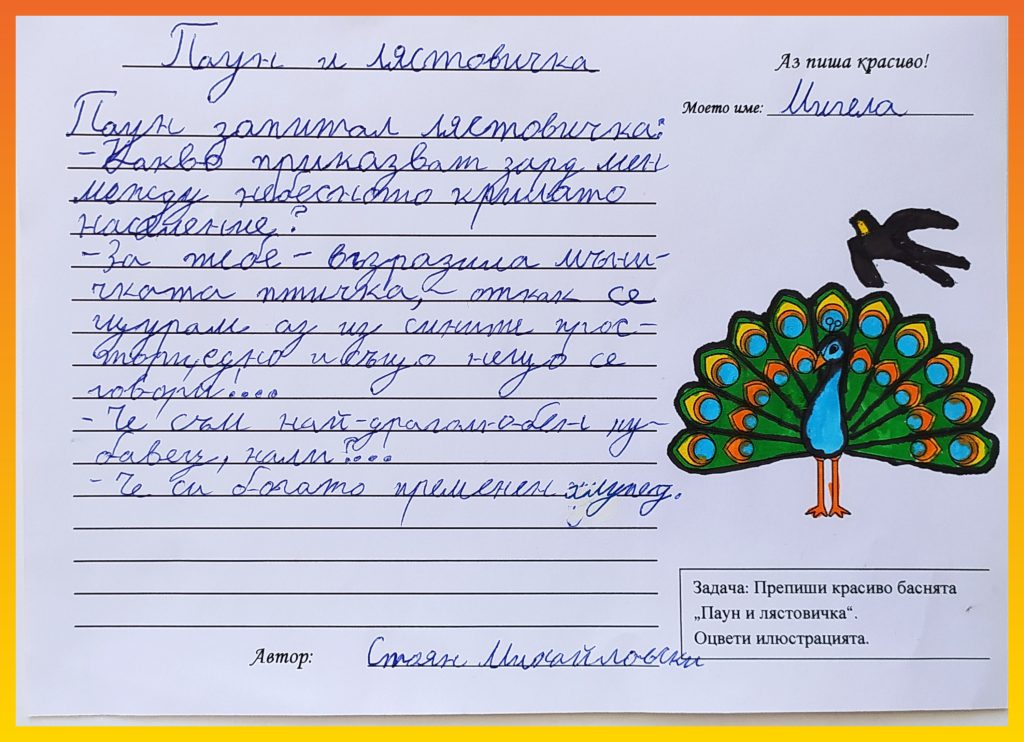 Паун и лястовичка
Аз пиша красиво!
Моето име: Мигела
Паун запитал лястовичка:
- Какво приказват зард мен
между небесното крилато
население?
- За тебе - възразила мъни-
чката птичка, - откак се
щурам аз из сините прос-
тори, едно и също нещо се
говори!....
- Че съм най-драгоценен ху-
бавец, нали?....
- Че си богато пременен глупец.
Задача: Препиши красиво баснята
„Паун и лястовичка“.
Оцвети илюстрацията.
Автор: Стоян Михайловски